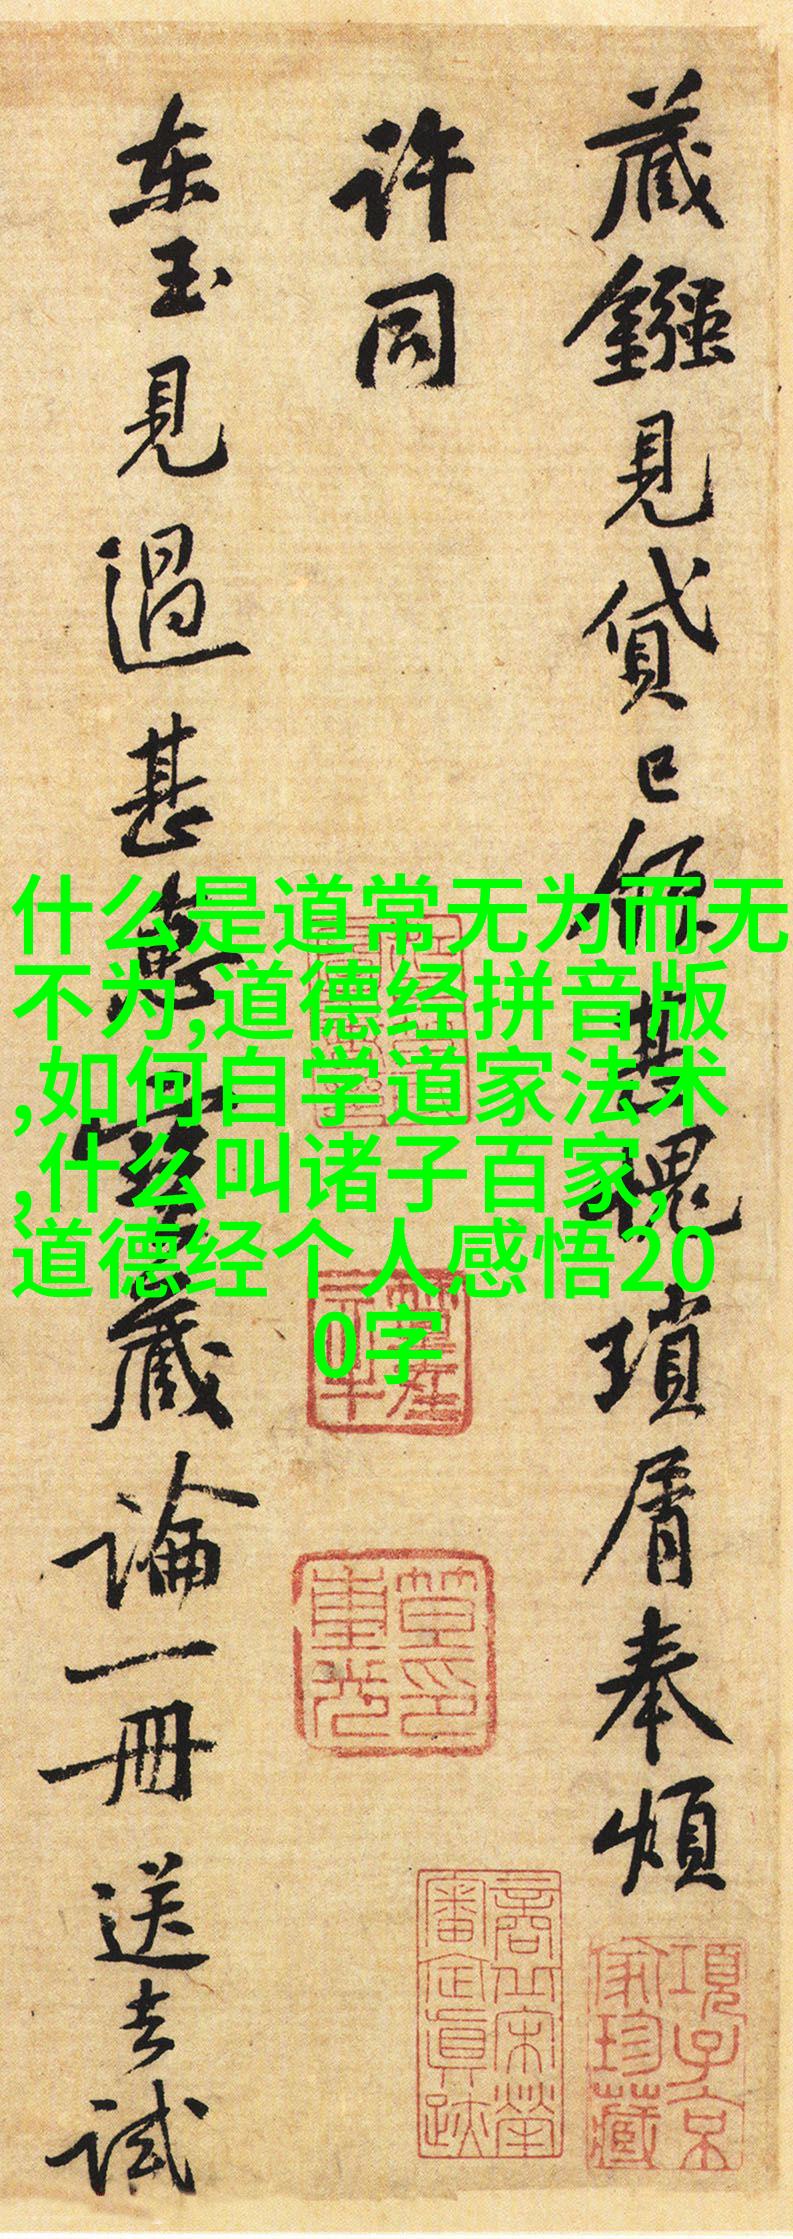 藏鏹見貸已領甚愧瑣屑奉煩
许同
东玉見過甚慰寶藏論一冊送去試
什么是道常无为而无
不为,道德经拼音版
,如何自学道家法术
,什么叫诸子百家,
道德经个人感悟20
0字
項子京
家珍藏